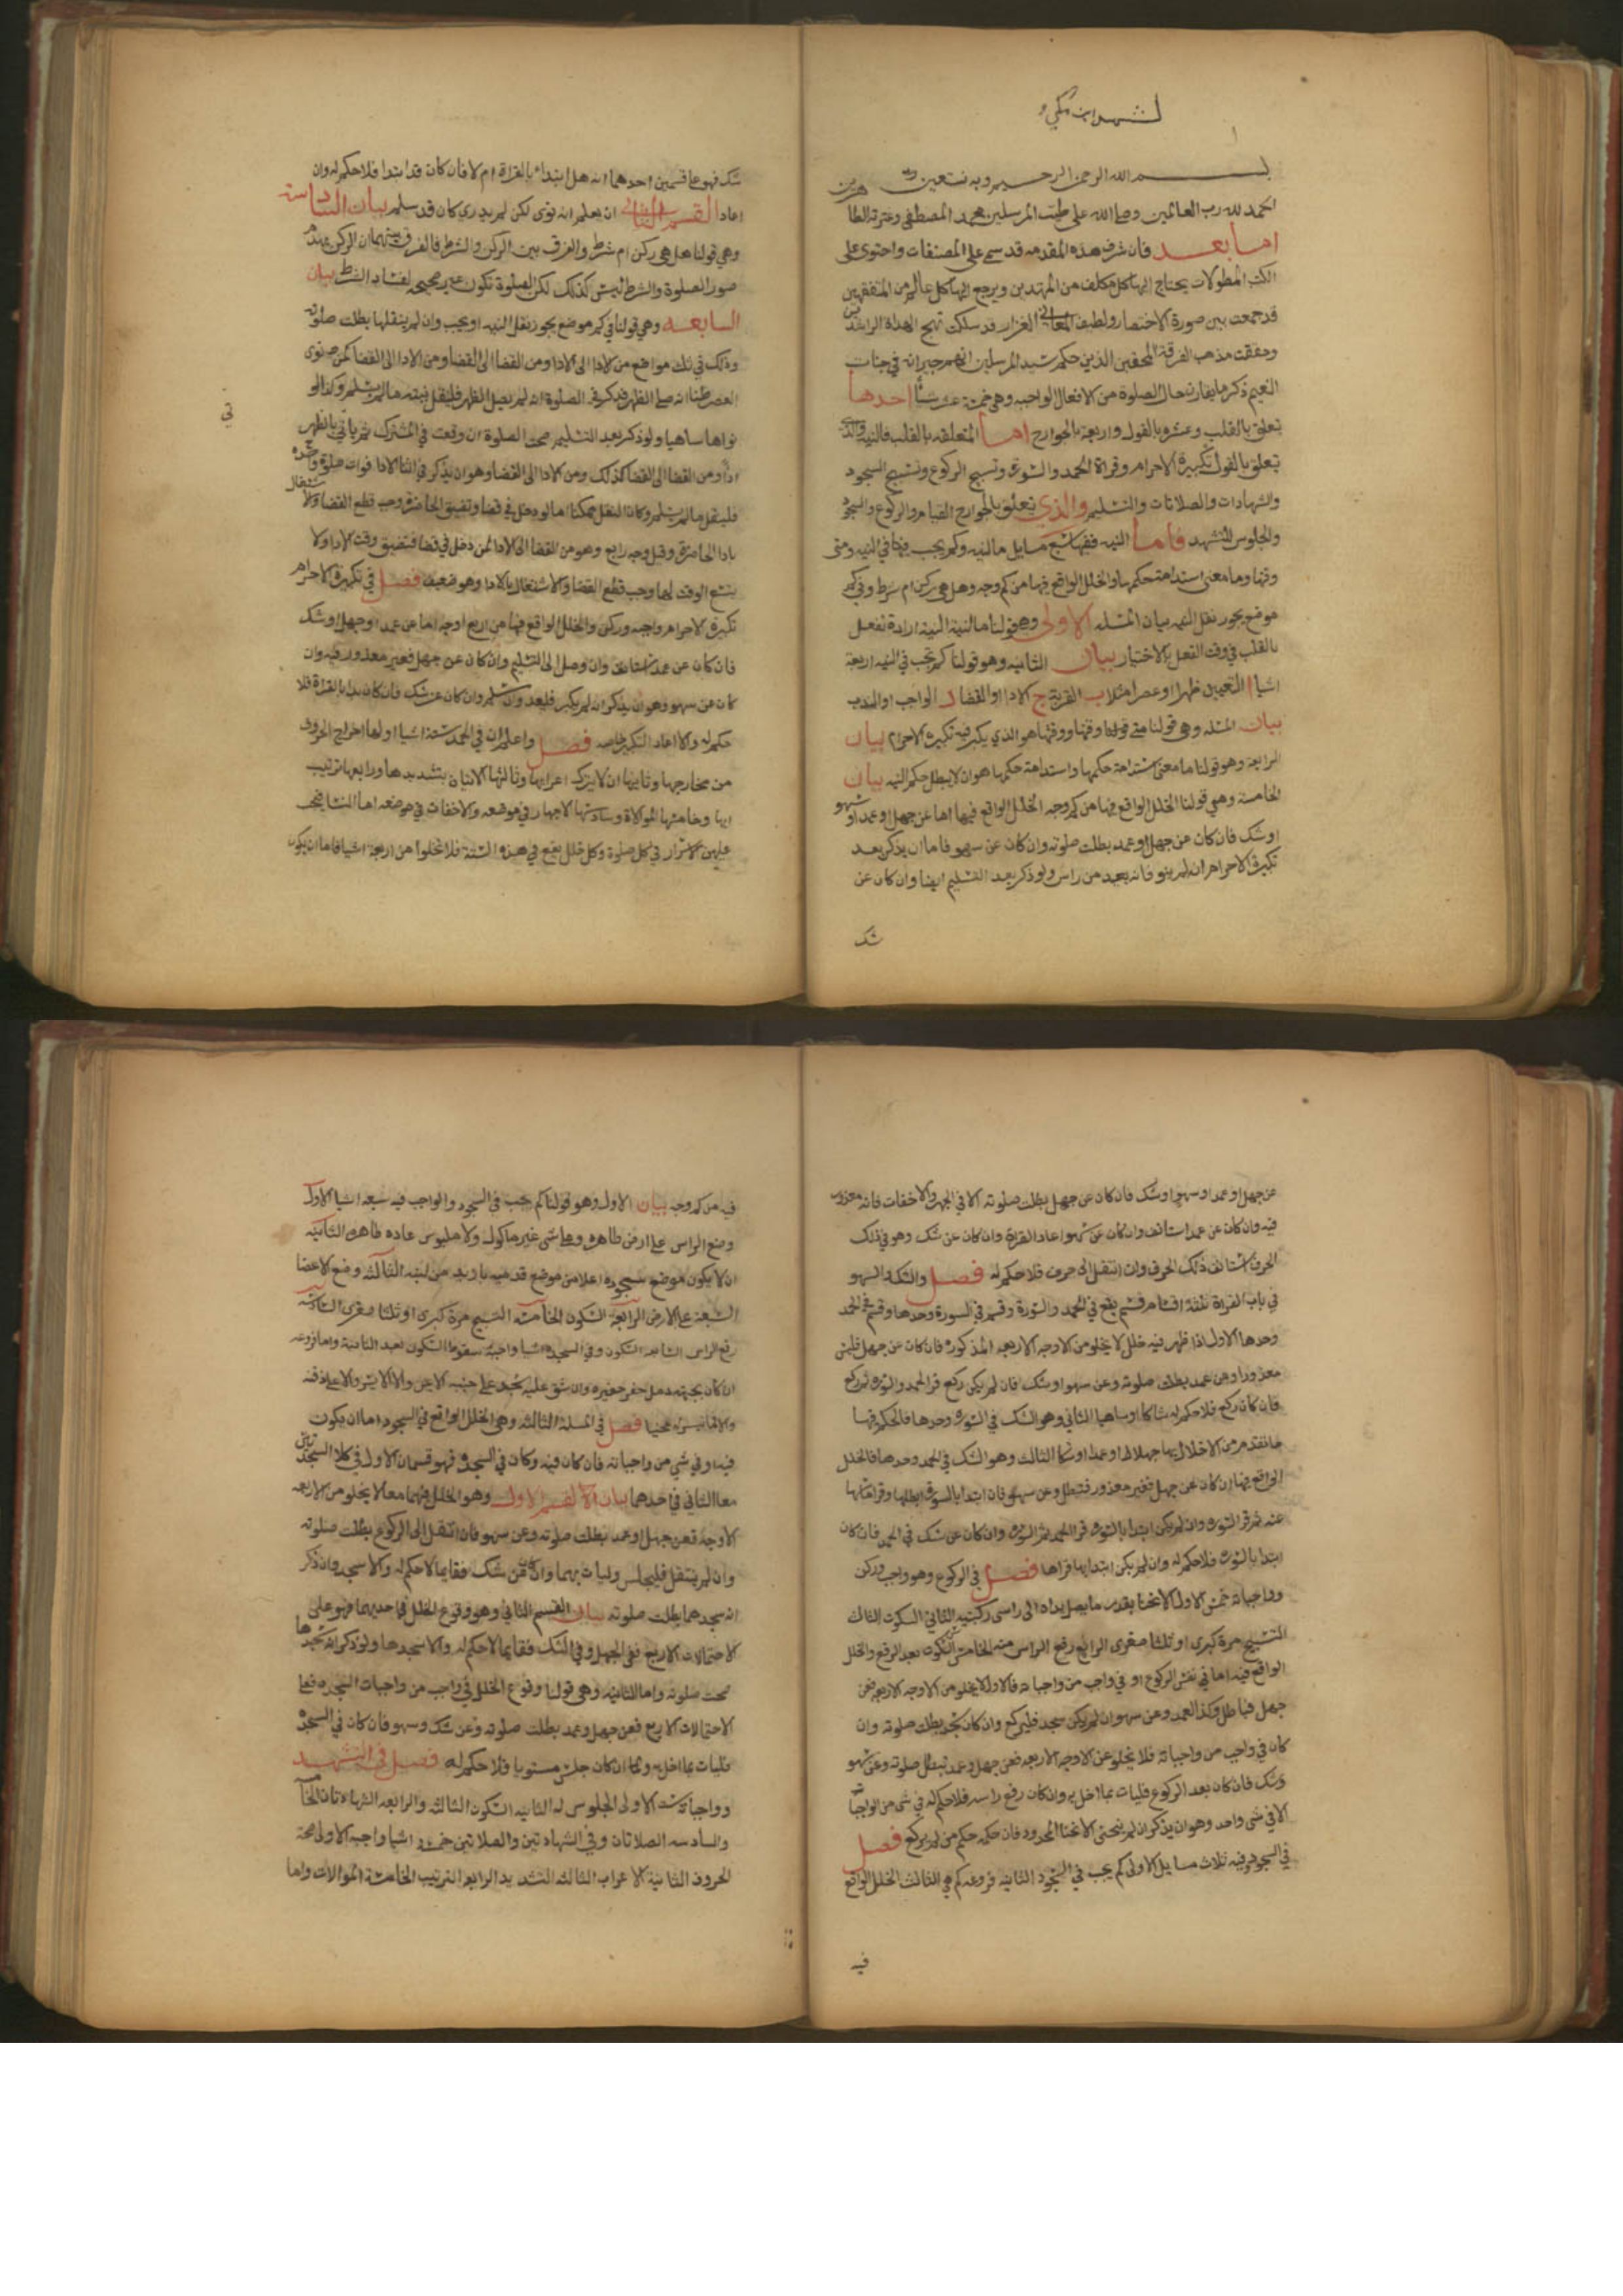 لشهيد ابن مكي
بسم الله الرحمن الرحيم وبه نستعين
الحمد لله رب العالمين وصلى الله على طيب المرسلين محمد المصطفى وعترته الطاهرين
اما بعد فان شرف هذه المقدمه قد سمى على المصنفات واحتوى على
الكتب المطولات يحتاج اليها كل مكلف من المهتدين ويرجع اليها كل عالم من المتفقهين
قد جمعت بين صورة الاختصار ولطيف المعانى الغزار قد سلكت نهج الهداة الراشدين
وحققت مذهب الفرقة المحقين الذين حكم سيد المرسلين انهم جيرانه في جنات
النعيم ذكر ما يقارن حال الصلوة من الافعال الواجبه وهي خمسة عشر شيأ احدها
تعلق بالقلب وعشرة بالقول واربعة بالجوارح اما المتعلقه بالقلب فالنيه والذى
تعلق بالقول تكبيرة الاحرام وقراة الحمد والسورة وتسبيح الركوع وتسبيح السجود
والشهادات والصلاتات والتسليم والذي تعلق بالجوارح القيام والركوع والسجود
والجلوس للتشهد فاما النيه ففيها سبع مسايل ما النيه وكم يجب فيها في النيه ومتى
وقتها وما معنى استدامة حكمها والخلل الواقع فيها من كم وجه وهل هى ركن ام شرط وفي كم
موضع يجوز نقل النيه بيان المسله الاولى وهو قولنا ما النية النية ارادة تفعل
بالقلب في وقت الفعل بالاختيار بيان الثانيه وهو قولنا كم تجب في النيه اربعة
اشيا ا التعيين ظهرا او عصرا مثلا ب القربة ج الادا او القضا د الواجب او الندب
بيان المسله وهي قولنا متى وقتها ووقتها هو الذي يكبر فيه تكبيرة الاحرام بيان
الرابعة وهو قولنا ما معنى استدامة حكمها واستدامة حكمها هو ان لا يبطل حكم النيه بيان
الخامسة وهي قولنا الخلل الواقع فيها من كم وجه الخلل الواقع فيها اما عن جهل او عمد او سهو
او شك فان كان عن جهل او عمد بطلت صلوته وان كان عن سهو فاما ان يذكر بعد
تكبيرة الاحرام انه لم ينو فانه يعيد من راس ولو ذكر بعد التسليم ايضا وان كان عن
شك
شك فهو على قسمين احدهما انه هل ابتداء بالقراة ام لا فان كان قد ابتدا فلا حكم له وان
اعاد القسم الثاني ان يعلم انه نوى لكن لم يدري كان قد سلم بيان السادسة
وهي قولنا هل هي ركن ام شرط والفرق بين الركن والشرط فالفرق بينهما ان الركن
صور الصلوة والشرط ليس كذلك لكن الصلوة تكون غير صحيحه لفساد الشرط بيان
السابعه وهي قولنا في كم موضع يجوز نقل النيه او يجب وان لم ينقلها بطلت صلوته
وذلك في ثلث مواضع من الادا الى الادا ومن القضا الى القضا ومن الادا الى القضا كمن نوى
العصر ظنا انه صلى الظهر فيذكر في الصلوة انه لم يصل الظهر فلينقل نيته ما لم يسلم وكذا لو
نواها ساهيا ولو ذكر بعد التسليم صحت الصلوة ان وقعت في المشترك ثم ياتي بالظهر
اداء ومن القضا الى القضا كذلك ومن الادا الى القضا وهو ان يذكر في اثنا الادا فوات صلوة واحده
فلينقل ما لم يسلم وكان النقل ممكنا اما لو دخل في قضا وتضيق الحاضرة وجب قطع القضا والاشتغال
بادا الحاضرة وقيل وجه رابع وهو من القضا الى الادا لمن دخل في قضا فتضيق وقت الادا ولا
يتسع الوقت لهما وجب قطع القضا والاشتغال بالادا وهو ضعيف فصل في تكبيرة الاحرام
تكبيرة الاحرام واجبه وركن والخلل الواقع فيها من اربع اوجه اما عن عمد او جهل او شك
فان كان عن عمد استانف وان وصل الى التسليم وان كان عن جهل فغير معذور فيه وان
كان عن سهو وهو ان يذكر انه لم يكبر فليعد وان سلم وان كان عن شك فان كان بدا بالقراة فلا
حكم له والا اعاد التكبير خاصه فصل واعلم ان في الحمد ستة اشيا اولها اخراج الحروف
من مخارجها وثانيها ان لا يترك اعرابها وثالثها الاتيان بتشديدها ورابعها ترتيب
ايها وخامسها الموالاة وسادسها الاجهار في موضعه والاخفات في موضعه اما النسا فيجب
عليهن الاسرار في كل صلوة وكل خلل يقع في هذه الستة فلا تخلوا من اربعة اشيا فاما ان يكون
عن جهل او عمد او سهو او شك فان كان عن جهل بطلت صلوته الا في الجهر والاخفات فانه معذور
فيه وان كان عن عمد استانف وان كان عن سهو اعاد القراة وان كان عن شك وهو في ذلك
الحرف استانف ذلك الحرف وان انتقل الى حرف فلا حكم له فصل والشك والسهو
في باب القراة ثلثة اقسام قسم يقع في الحمد والسورة وقسم في السورة وحدها وقسم في الحمد
وحدها الاول اذا ظهر فيه خلل لا يخلو من الاوجه الاربعه المذكورة فان كان عن جهل فليس
معذورا وعن عمد بطلت صلوته وعن سهو او شك فان لم يكن ركع قرا الحمد والسورة ثم ركع
فان كان ركع فلا حكم له شاكا او ساهيا الثاني وهو الشك في السورة وحدها فالحكم فيها
ما تقدم من الاخلال بها جهلا او عمدا او شكا الثالث وهو الشك في الحمد وحدها فالخلل
الواقع فيها ان كان عن جهل فغير معذور فتبطل وعن سهو فان ابتدا بالسورة ابطلها
ثم قرا السورة وان لم يكن ابتدا بالسورة قرا الحمد ثم السورة وان كان عن شك في الحمد فان كان
ابتدا بالسورة فلا حكم له وان لم يكن ابتدا بها قراها فصل في الركوع وهو واجب وركن
وواجباته خمس الاول الانحنا بقدر ما يصل يداه الى راسي ركبتيه الثاني السكون الثالث
التسبيح مرة كبرى او ثلثا صغرى الرابع رفع الراس منه الخامس السكون بعد الرفع والخلل
الواقع فيه اما في نفس الركوع او في واجب من واجباته فالاول لا يخلو من الاوجه الاربعه فعن
جهل فباطل وكذا العمد وعن سهو ان لم يكن سجد فليركع وان كان سجد بطلت صلوته وان
كان في واجب من واجباته فلا يخلو عن الاوجه الاربعه فعن جهل وعمد تبطل صلوته وعن سهو
وشك فان كان بعد الركوع فليات بما اخل به وان كان رفع راسه فلا حكم له في شى من الواجبات
الا في شى واحد وهو ان يذكر انه لم ينحنى الانحنا المحدود فان حكمه حكم من لم يركع فصل
في السجود وفيه ثلاث مسايل الاولى كم يجب في السجود الثانيه فروعه كم هي الثالث الخلل الواقع
فيه
فيه من كم وجه بيان الاول وهو قولنا كم يجب في السجود والواجب فيه سبعه اشيا الاول
وضع الراس على ارض طاهره وعلى شى غير ماكول ولا ملبوس عاده طاهره الثانيه
ان لا يكون موضع سجوده اعلا من موضع قدميه بازيد من لبنه الثالثه وضع الاعضا
السبعة على الارض الرابعة السكون الخامسه التسبيح مرة كبرى او ثلثا صغرى السادسه
رفع الراس السابعه السكون وفي السجده اشيا واجبه سقوط السكون بعد الثانية واما فروعه
ان كان بجبهته دمل حفر حفيره وان شق عليه سجد على جنبه الايمن والا الايسر والا على ذقنه
فصل في المسلة الثالثه وهي الخلل الواقع في السجود اما ان يكون
فيه او في شي من واجباته فان كان فيه وكان في السجدة فهو قسمان الاول في كلا السجدتين
معا الثاني في احدهما بيان القسم الاول وهو الخلل فيهما معا لا يخلو من الاربعه
الاوجه فعن جهل او عمد بطلت صلوته وعن سهو فان انتقل الى الركوع بطلت صلوته
وان لم ينتقل فليجلس وليات بهما وان كان عن شك فقايما لا حكم له والا سجد وان ذكر
انه سجدهما بطلت صلوته بيان القسم الثاني وهو وقوع الخلل في احديهما فهو على
الاحتمالات الاربع ففي الجهل وفي الشك فقايما لا حكم له والا سجدها ولو ذكر انه سجدها
صحت صلوته واما الثانيه وهي قولنا وقوع الخلل في واجب من واجبات السجده فعلى
الاحتمالات الاربع فعن جهل وعمد بطلت صلوته وعن شك وسهو فان كان في السجده
فليات بما اخل به واما ان كان جلس مستويا فلا حكم له فصل في التشهد
وواجباته ست الاولى الجلوس له الثانيه السكون الثالثه والرابعه الشهادتان الخامسة
والسادسه الصلاتان وفي الشهادتين والصلاتين خمسه اشيا واجبه الاولى صحة
الحروف الثانية الاعراب الثالثه التشديد الرابعه الترتيب الخامسة الموالات واما